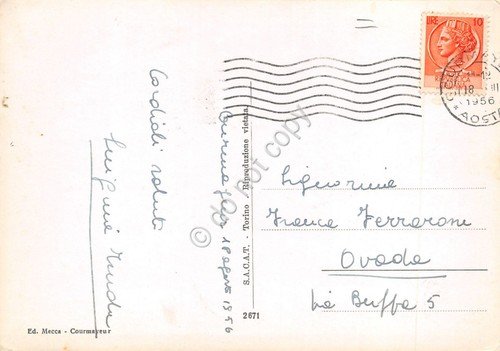 LIRE 10
18
1956
AOSTA
Cordiali saluti
Courmayeur 18 agosto 1956
S.A.C.A.T. - Torino - Riproduzione vietata
2671
Signorina
Franca Ferrarone
Ovada
Via Buffa 5
Ed. Mecca - Courmayeur
© do not copy